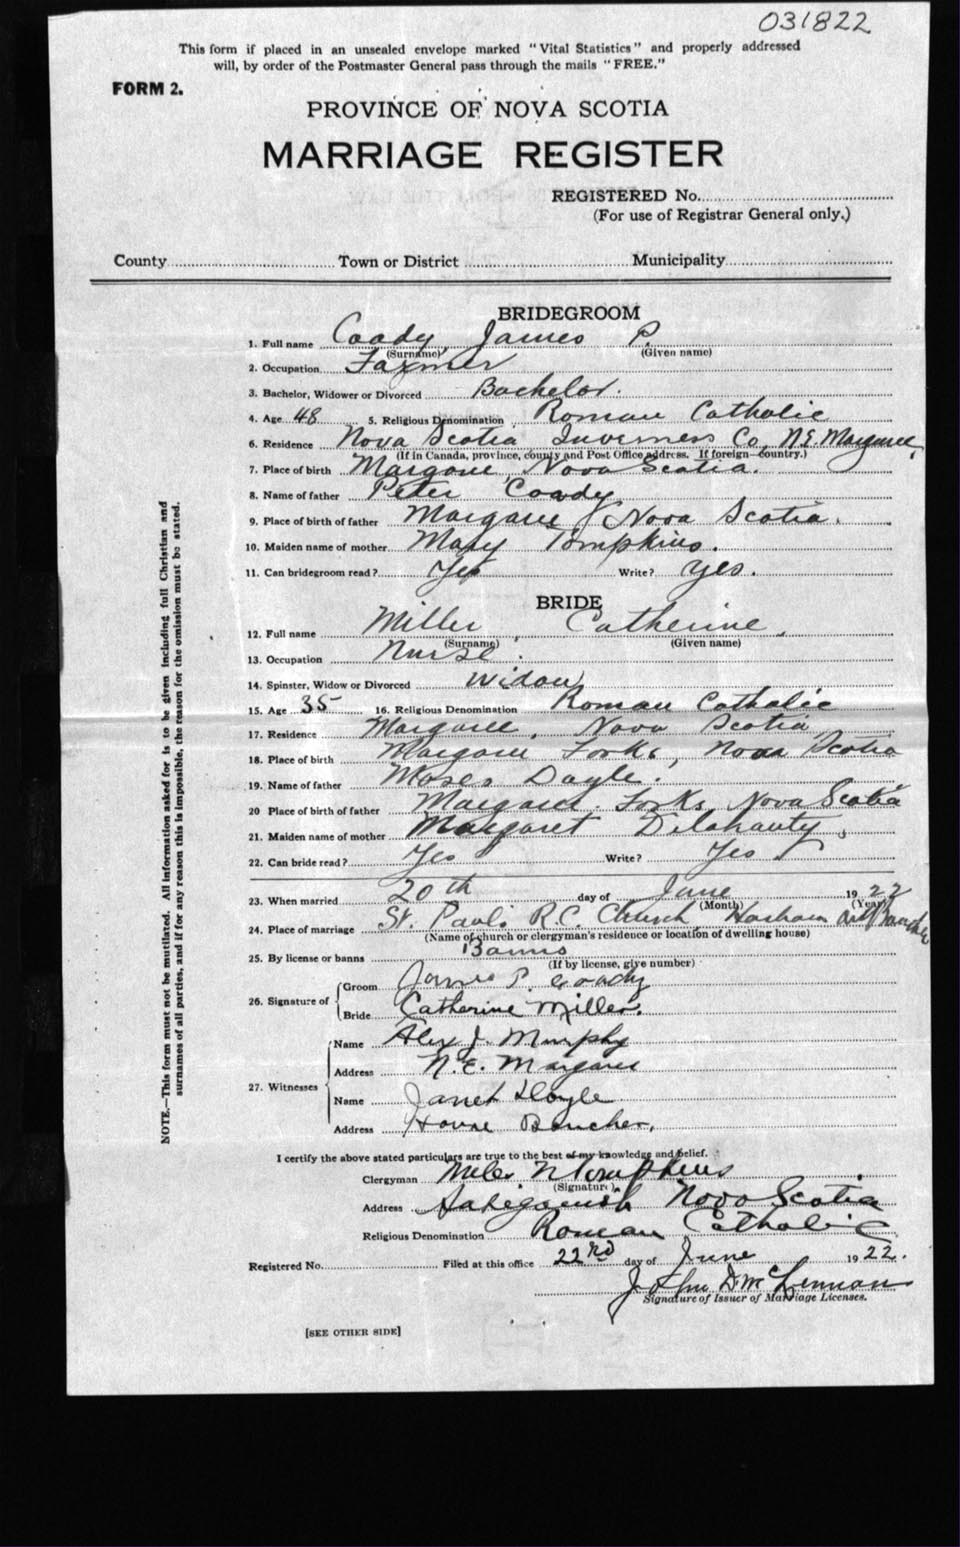 031822
This form if placed in an unsealed envelope marked "Vital Statistics" and properly addressed
will, by order of the Postmaster General pass through the mails "FREE."
FORM 2.
PROVINCE OF NOVA SCOTIA
MARRIAGE REGISTER
REGISTERED No.
(For use of Registrar General only.)
County Town or District Municipality
BRIDEGROOM
1. Full name Coady, James P.
(Surname) (Given name)
2. Occupation Farmer
3. Bachelor, Widower or Divorced Bachelor.
4. Age 48 5. Religious Denomination Roman Catholic
6. Residence Nova Scotia Inverness Co, N.E. Margaree,
(If in Canada, province, county and Post Office address. If foreign—country.)
7. Place of birth Margaree, Nova Scotia.
8. Name of father Peter Coady
9. Place of birth of father Margaree Nova Scotia.
10. Maiden name of mother Mary Tompkins.
11. Can bridegroom read? Yes Write? yes.
BRIDE
12. Full name Miller, Catherine.
(Surname) (Given name)
13. Occupation Nurse.
14. Spinster, Widow or Divorced Widow
15. Age 35 16. Religious Denomination Roman Catholic
17. Residence Margaree, Nova Scotia
18. Place of birth Margaree Forks, Nova Scotia
19. Name of father Moses Doyle.
20 Place of birth of father Margaree Forks, Nova Scotia
21. Maiden name of mother Margaret Delahanty
22. Can bride read? Yes Write? Yes
23. When married 20th day of June 1922
(Month) (Year)
24. Place of marriage St. Paul's R.C. Church Havre au Boucher
(Name of church or clergyman's residence or location of dwelling house)
25. By license or banns Banns
(If by license, give number)
26. Signature of
Groom James P. Coady
Bride Catherine Miller.
27. Witnesses
Name Alex J. Murphy
Address N.E. Margaree
Name Janet Doyle
Address Havre Boucher.
I certify the above stated particulars are true to the best of my knowledge and belief.
Clergyman Miles N Tompkins
(Signature)
Address Antigonish Nova Scotia
Religious Denomination Roman Catholic
Registered No. Filed at this office 22nd day of June 1922.
John D. McLennan
Signature of Issuer of Marriage Licenses.
[SEE OTHER SIDE]
NOTE.—This form must not be mutilated. All information asked for is to be given including full Christian and
surnames of all parties, and if for any reason this is impossible, the reason for the omission must be stated.